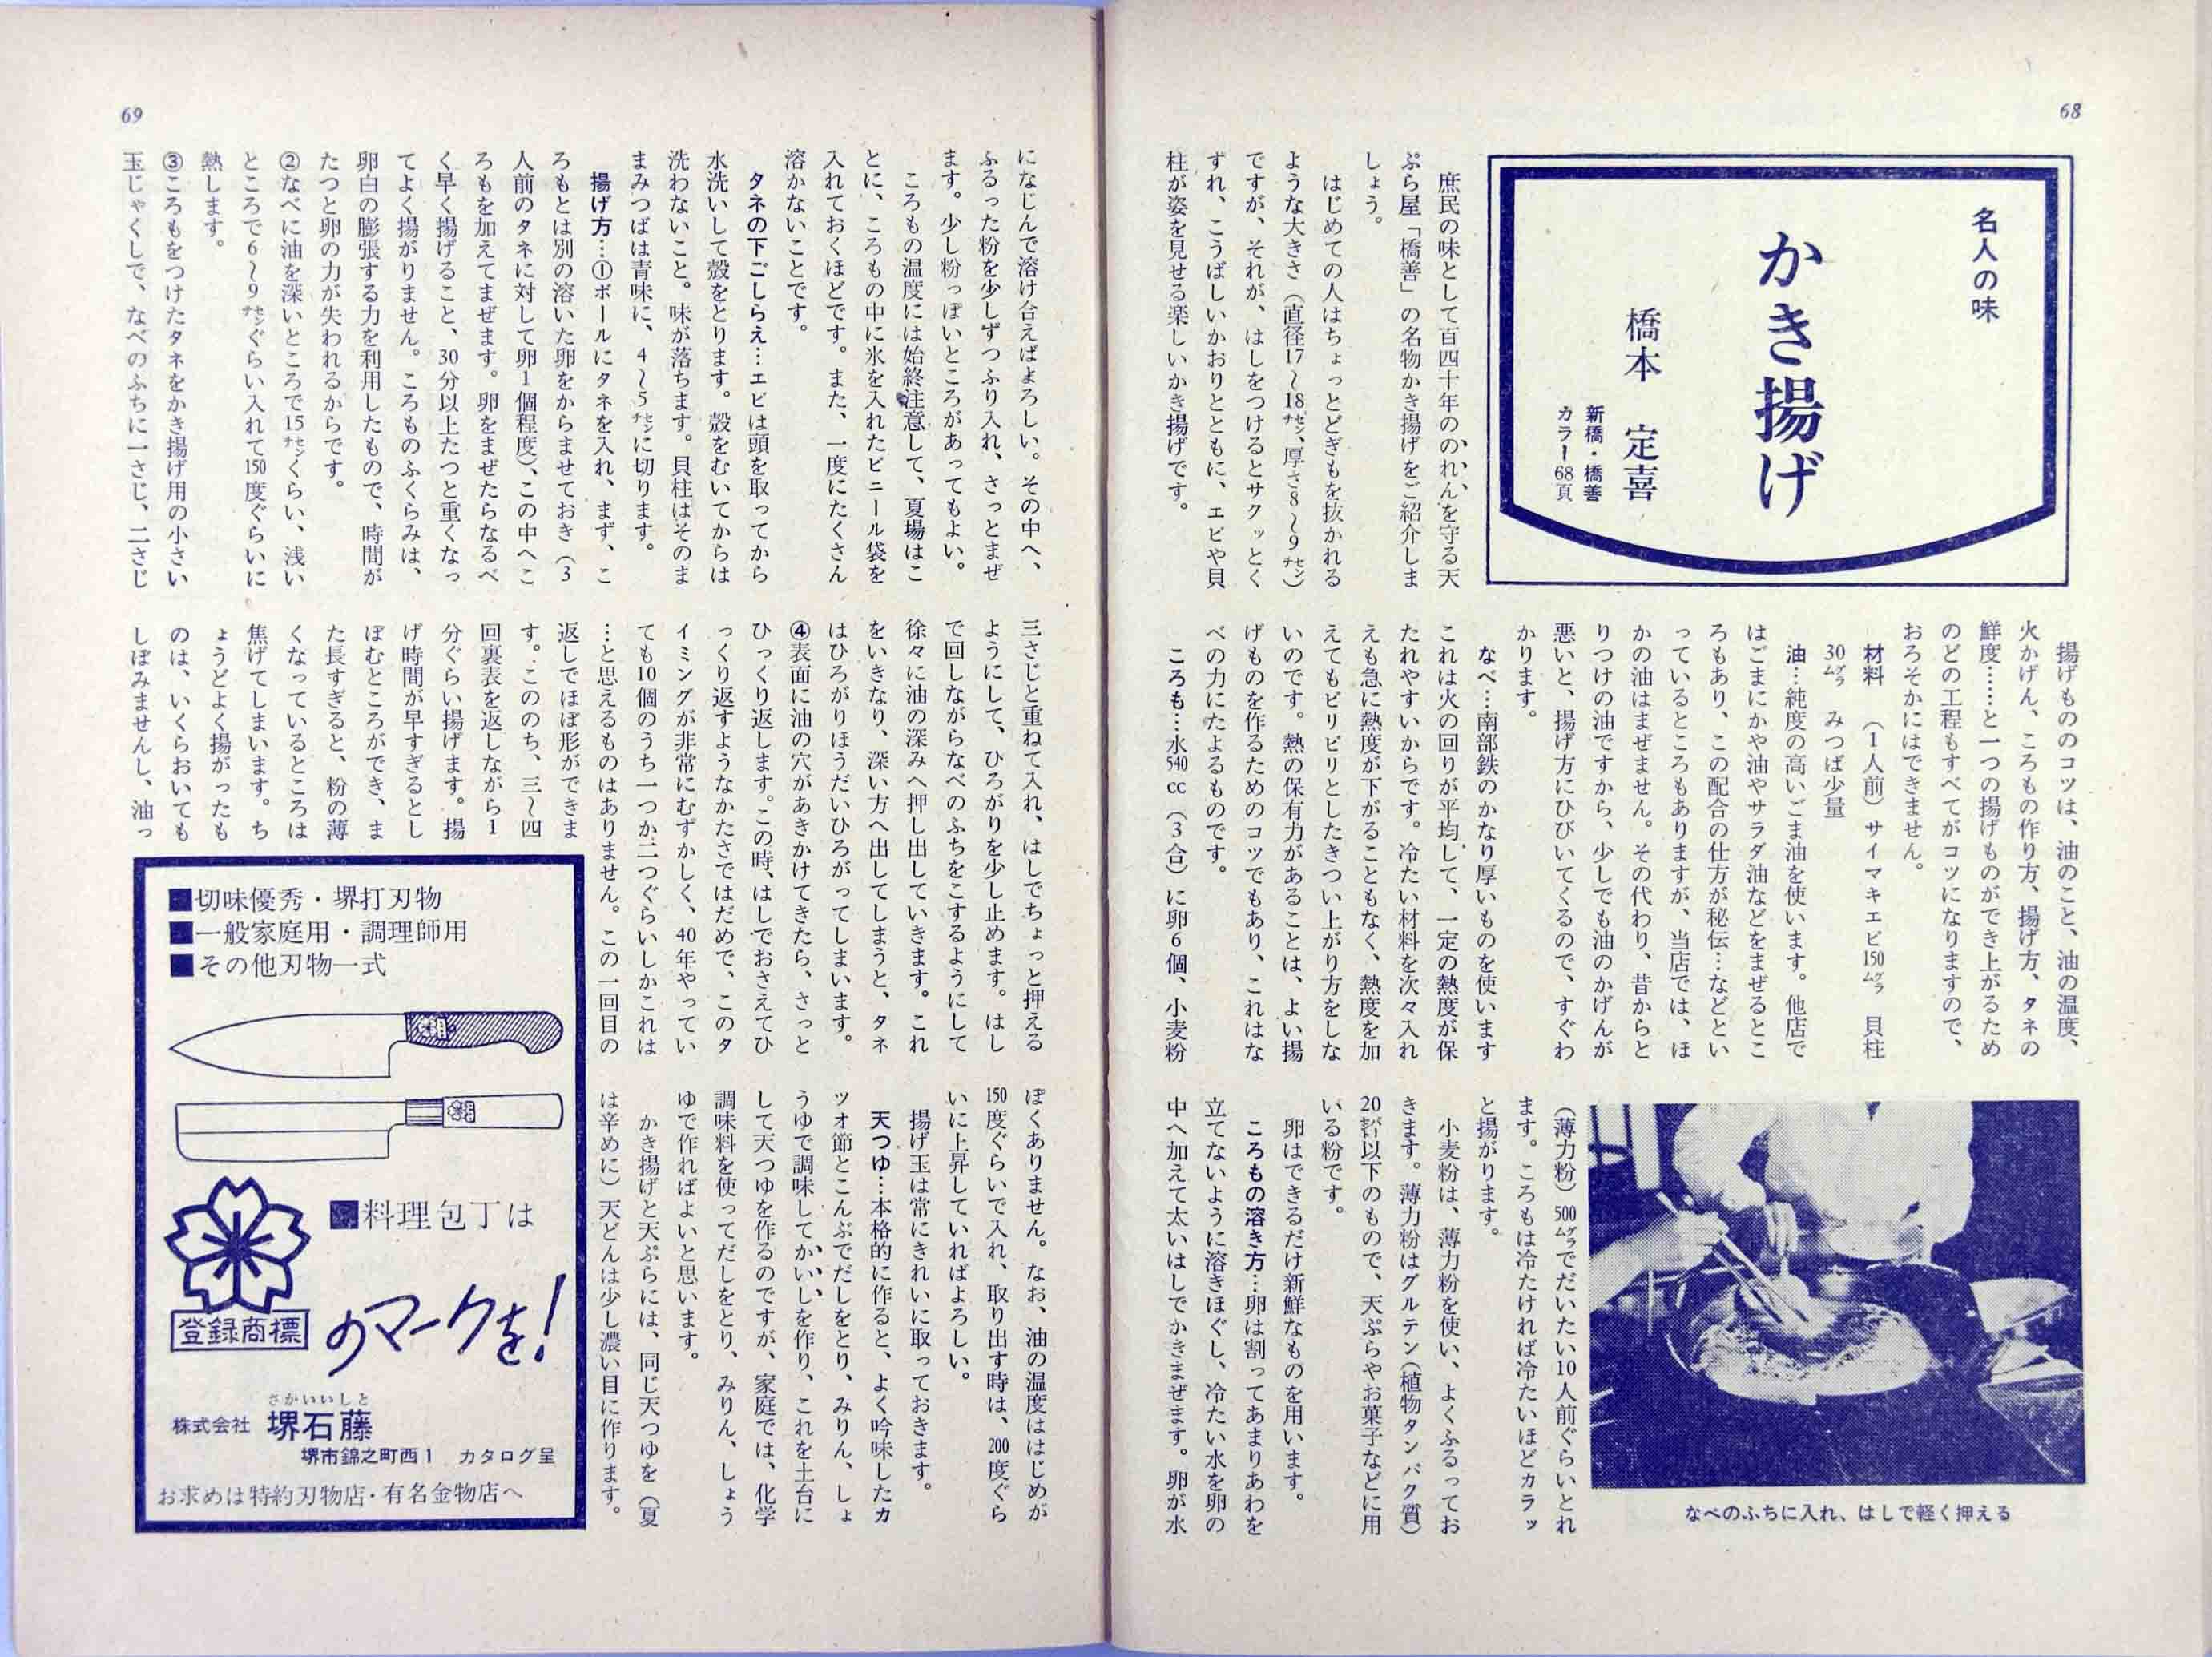 68
名人の味
かき揚げ
橋本 定喜
新橋・橋善
カラー68頁
庶民の味として百四十年ののれんを守る天
ぷら屋「橋善」の名物かき揚げをご紹介しま
しょう。
はじめての人はちょっとどぎもを抜かれる
ような大きさ(直径17〜18センチ、厚さ8〜9センチ)
ですが、それが、はしをつけるとサクッとく
ずれ、こうばしいかおりとともに、エビや貝
柱が姿を見せる楽しいかき揚げです。
揚げもののコツは、油のこと、油の温度、
火かげん、ころもの作り方、揚げ方、タネの
鮮度……と一つの揚げものができ上がるため
のどの工程もすべてがコツになりますので、
おろそかにはできません。
材料 (1人前) サイマキエビ150グラム 貝柱
30グラム みつば少量
油…純度の高いごま油を使います。他店で
はごまにかや油やサラダ油などをまぜるとこ
ろもあり、この配合の仕方が秘伝…などとい
っているところもありますが、当店では、ほ
かの油はまぜません。その代わり、昔からと
りつけの油ですから、少しでも油のかげんが
悪いと、揚げ方にひびいてくるので、すぐわ
かります。
なべ…南部鉄のかなり厚いものを使います
これは火の回りが平均して、一定の熱度が保
たれやすいからです。冷たい材料を次々入れ
えも急に熱度が下がることもなく、熱度を加
えてもピリピリとしたきつい上がり方をしな
いのです。熱の保有力があることは、よい揚
げものを作るためのコツでもあり、これはな
べの力にたよるものです。
ころも…水540cc(3合)に卵6個、小麦粉
(薄力粉)500グラムでだいたい10人前ぐらいとれ
ます。ころもは冷たければ冷たいほどカラッ
と揚がります。
小麦粉は、薄力粉を使い、よくふるってお
きます。薄力粉はグルテン(植物タンパク質)
20%以下のもので、天ぷらやお菓子などに用
いる粉です。
卵はできるだけ新鮮なものを用います。
ころもの溶き方…卵は割ってあまりあわを
立てないように溶きほぐし、冷たい水を卵の
中へ加えて太いはしでかきまぜます。卵が水
なべのふちに入れ、はしで軽く押える
69
になじんで溶け合えばよろしい。その中へ、
ふるった粉を少しずつふり入れ、さっとまぜ
ます。少し粉っぽいところがあってもよい。
ころもの温度には始終注意して、夏場はこ
とに、ころもの中に氷を入れたビニール袋を
入れておくほどです。また、一度にたくさん
溶かないことです。
タネの下ごしらえ…エビは頭を取ってから
水洗いして殻をとります。殻をむいてからは
洗わないこと。味が落ちます。貝柱はそのま
まみつばは青味に、4〜5センチに切ります。
揚げ方…①ボールにタネを入れ、まず、こ
ろもとは別の溶いた卵をからませておき(3
人前のタネに対して卵1個程度)、この中へこ
ろもを加えてまぜます。卵をまぜたらなるべ
く早く揚げること、30分以上たつと重くなっ
てよく揚がりません。ころものふくらみは、
卵白の膨張する力を利用したもので、時間が
たつと卵の力が失われるからです。
②なべに油を深いところで15センチくらい、浅い
ところで6〜9センチぐらい入れて150度ぐらいに
熱します。
③ころもをつけたタネをかき揚げ用の小さい
玉じゃくしで、なべのふちに一さじ、二さじ
三さじと重ねて入れ、はしでちょっと押える
ようにして、ひろがりを少し止めます。はし
で回しながらなべのふちをこするようにして
徐々に油の深みへ押し出していきます。これ
をいきなり、深い方へ出してしまうと、タネ
はひろがりほうだいひろがってしまいます。
④表面に油の穴があきかけてきたら、さっと
ひっくり返します。この時、はしでおさえてひ
っくり返すようなかたさではだめで、このタ
イミングが非常にむずかしく、40年やってい
ても10個のうち一つか二つぐらいしかこれは
…と思えるものはありません。この一回目の
返しでほぼ形ができま
す。こののち、三〜四
回裏表を返しながら1
分ぐらい揚げます。揚
げ時間が早すぎるとし
ぼむところができ、ま
た長すぎると、粉の薄
くなっているところは
焦げてしまいます。ち
ょうどよく揚がったも
のは、いくらおいても
しぼみませんし、油っ
ぽくありません。なお、油の温度ははじめが
150度ぐらいで入れ、取り出す時は、200度ぐら
いに上昇していればよろしい。
揚げ玉は常にきれいに取っておきます。
天つゆ…本格的に作ると、よく吟味したカ
ツオ節とこんぶでだしをとり、みりん、しょ
うゆで調味してかいしを作り、これを土台に
して天つゆを作るのですが、家庭では、化学
調味料を使ってだしをとり、みりん、しょう
ゆで作ればよいと思います。
かき揚げと天ぷらには、同じ天つゆを(夏
は辛めに)天どんは少し濃い目に作ります。
■切味優秀・堺打刃物
■一般家庭用・調理師用
■その他刃物一式
■料理包丁は
登録商標
のマークを!
さかいいしとう
株式会社 堺石藤
堺市錦之町西1 カタログ呈
お求めは特約刃物店・有名金物店へ